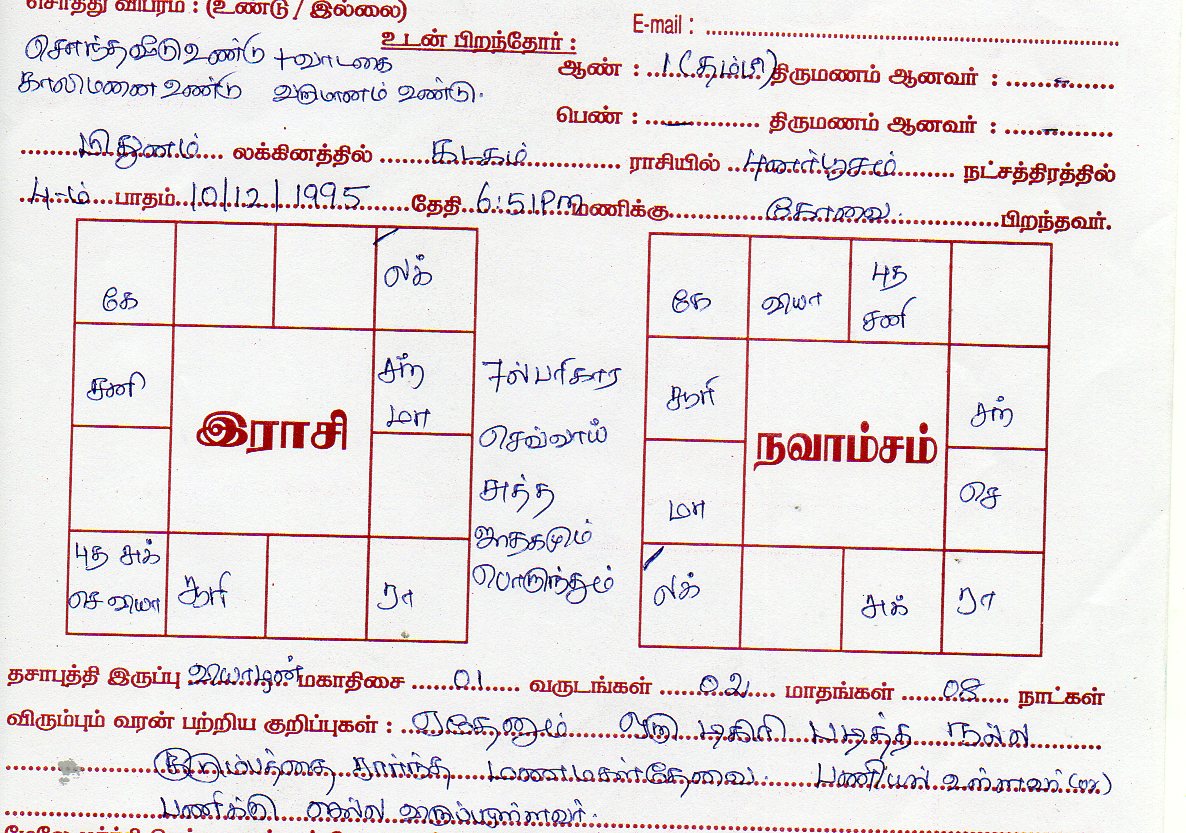 சொத்து விபரம் : (உண்டு / இல்லை)
E-mail :
சொந்தவீடு உண்டு + வாடகை
உடன் பிறந்தோர் :
ஆண் : 1 (தம்பி) திருமணம் ஆனவர் : -
காலிமனை உண்டு வருமானம் உண்டு.
பெண் : - திருமணம் ஆனவர் : -
மிதுனம் லக்கினத்தில் கடகம் ராசியில் புனர்பூசம் நட்சத்திரத்தில்
4-ம் பாதம் 10/12/1995 தேதி 6:51 Pm மணிக்கு கோவை பிறந்தவர்.
லக்
கே
சனி
சந்
மா
இராசி
புத சுக்
செ வியா
சூரி
ரா
7ல் பரிகார
செவ்வாய்
சுத்த
ஜாதகமும்
பொருந்தும்
கே
வியா
புத
சனி
சூரி
சந்
நவாம்சம்
மா
செ
லக்
சுக்
ரா
தசாபுத்தி இருப்பு வியாழன் மகாதிசை 01 வருடங்கள் 02 மாதங்கள் 08 நாட்கள்
விரும்பும் வரன் பற்றிய குறிப்புகள் : ஏதேனும் ஒரு டிகிரி படித்த நல்ல
குடும்பத்தை சார்ந்த மணமகள் தேவை. பணியில் உள்ளவர் (or)
பணிக்கு செல்ல விருப்பமுள்ளவர்.